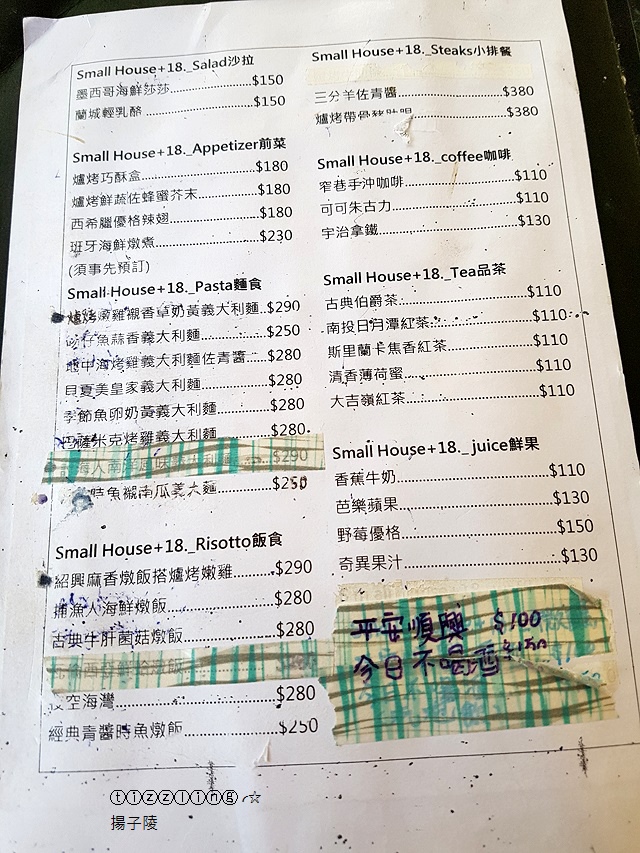 Small House+18._Salad沙拉
墨西哥海鮮莎莎..................$150
蘭城輕乳酪........................$150
Small House+18._Appetizer前菜
爐烤巧酥盒........................$180
爐烤鮮蔬佐蜂蜜芥末............$180
西希臘優格辣翅..................$180
班牙海鮮燉煮.....................$230
(須事先預訂)
Small House+18._Pasta麵食
爐烤嫩雞襯香草奶黃義大利麵..$290
仔魚蒜香義大利麵............$250
地中海烤雞義大利麵佐青醬.....$280
貝夏美皇家義大利麵............$280
季節魚卵奶黃義大利麵.........$280
巴薩米克烤雞義大利麵.........$280
$290
時魚襯南瓜義大麵............$250
Small House+18._Risotto飯食
紹興麻香燉飯搭爐烤嫩雞.........$290
捕漁人海鮮燉飯..................$280
古典牛肝菌菇燉飯...............$280
夜空海灣...........................$280
經典青醬時魚燉飯...............$250
Small House+18._Steaks小排餐
三分羊佐青醬.....................$380
爐烤帶骨豬肋眼..................$380
Small House+18._coffee咖啡
窄巷手沖咖啡.....................$110
可可朱古力........................$110
宇治拿鐵...........................$130
Small House+18._Tea品茶
古典伯爵茶........................$110
南投日月潭紅茶..................$110
斯里蘭卡焦香紅茶...............$110
清香薄荷蜜........................$110
大吉嶺紅茶........................$110
Small House+18._juice鮮果
香蕉牛奶...........................$110
芭樂蘋果...........................$130
野莓優格...........................$150
奇異果汁...........................$130
平安順興 $100
今日不喝酒 $150
ⓣⓘⓩⓩⓛⓘⓝⓖ╭☆
揚子陵